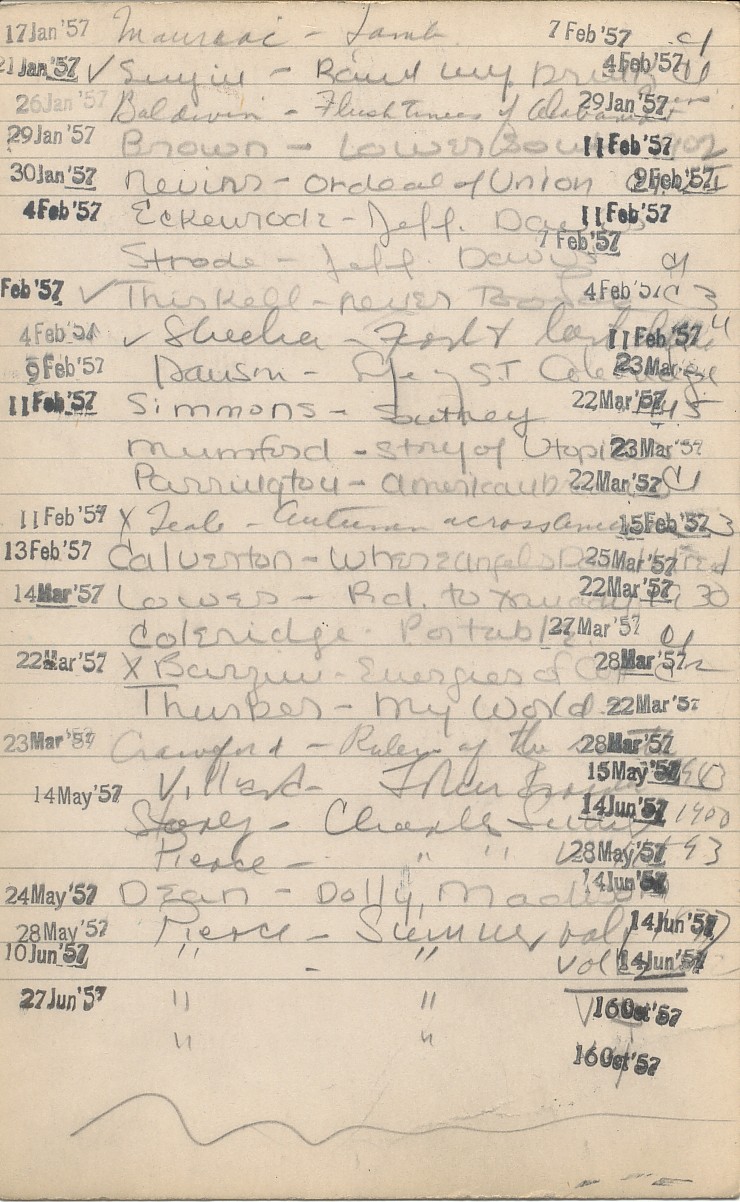 17 Jan '57 Mauriac - Lamb 7 Feb '57 c1
21 Jan '57 ✓ - my 4 Feb '57
26 Jan '57 Baldwin - Flush times of Alabama 29 Jan '57
29 Jan '57 Brown - Lower 11 Feb '57
30 Jan '57 Nevins - Ordeal of Union 9 Feb '57
4 Feb '57 Eckenrode - Jeff. Davis 11 Feb '57
Strode - Jeff. Davis 7 Feb '57 c1
Feb '57 ✓ Thirkell - never 4 Feb '57 C 3
4 Feb '57 ✓ - 11 Feb '57
9 Feb '57 - S.T. Coleridge 23 Mar
11 Feb '57 Simmons - Southey 22 Mar '57 1945
Mumford - Story of Utopia 23 Mar '57
Parrington - American 22 Mar '57 C1
11 Feb '57 X Teale - Autumn across 15 Feb '57 3
13 Feb '57 Calverton - Where angels 25 Mar '57
14 Mar '57 Lowes - Rd. to Xanadu 22 Mar '57 1930
Coleridge - Portable 27 Mar '57 c1
22 Mar '57 X Barzun - Energies of 28 Mar '57
Thurber - My World 22 Mar '57
23 Mar '57 Crawford - Rulers of the 28 Mar '57
14 May '57 Villard - John Brown 15 May '57 1943
Storey - Charles Sumner 14 Jun '57 1900
Pierce - " " 28 May '57 93
24 May '57 Dean - Dolly Madison 14 Jun '57
28 May '57 Pierce - Sumner vol 14 Jun '57
10 Jun '57 " - " vol 14 Jun '57
27 Jun '57 " " V 16 Oct '57
" " 16 Oct '57